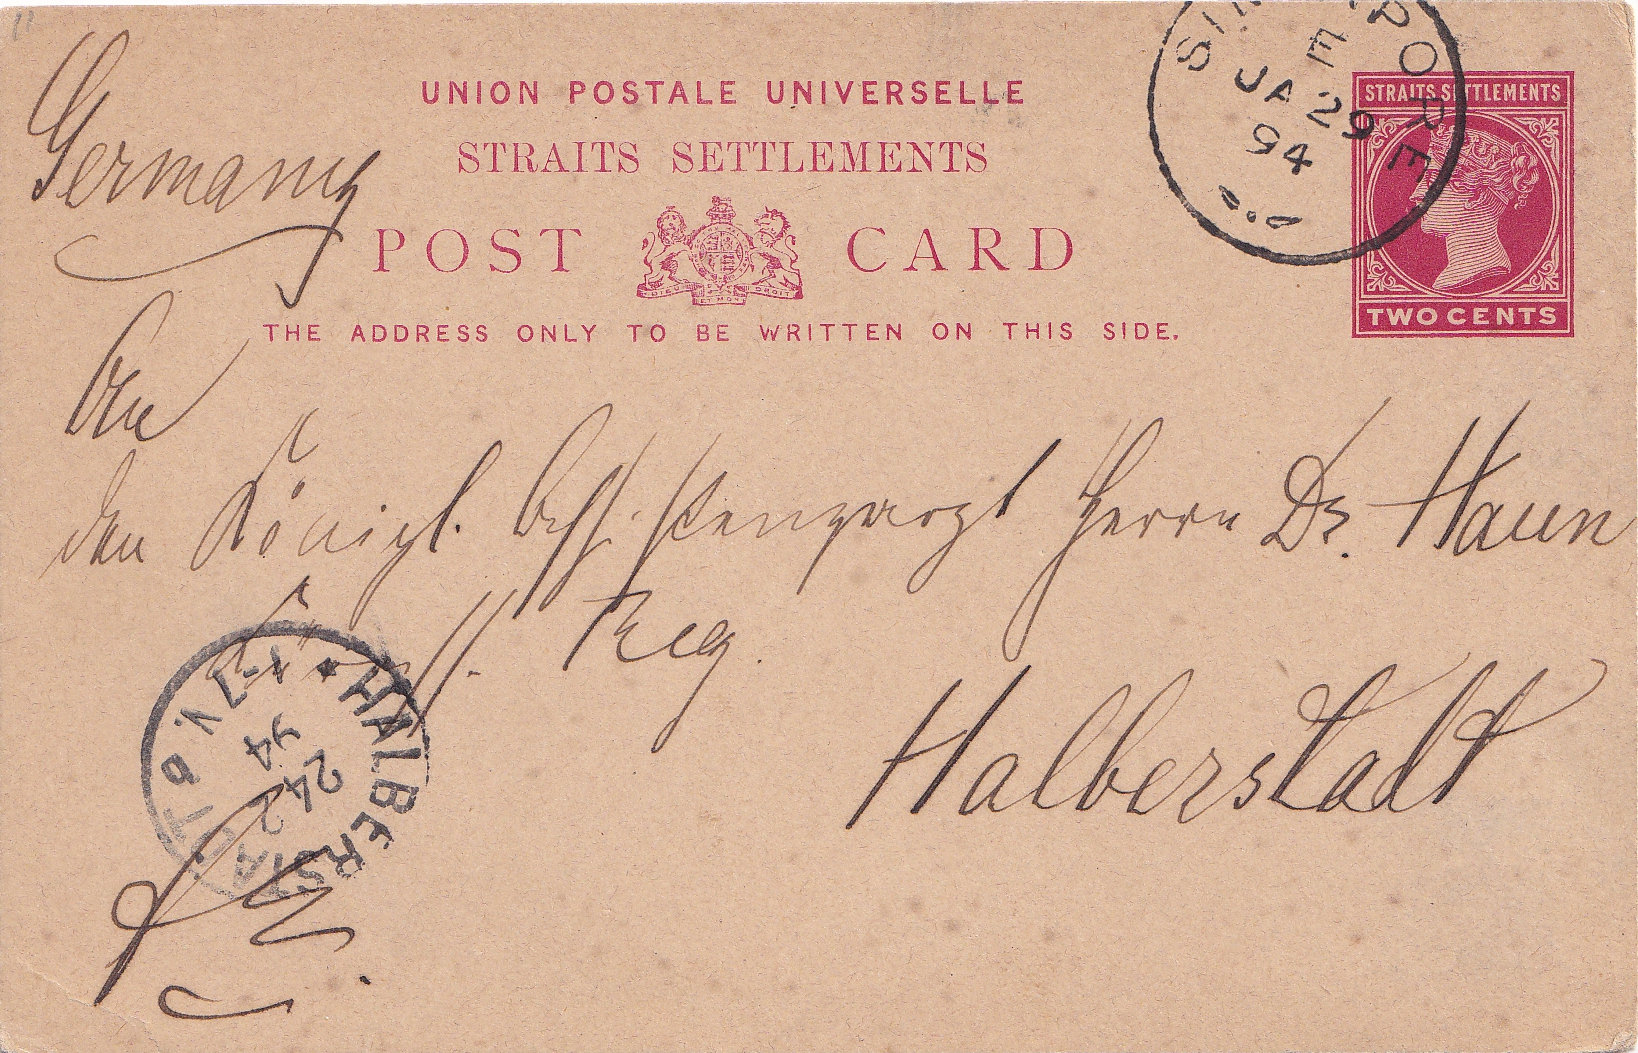 UNION POSTALE UNIVERSELLE
STRAITS SETTLEMENTS
POST CARD
DIEU ET MON DROIT
THE ADDRESS ONLY TO BE WRITTEN ON THIS SIDE.
SINGAPORE
E
JA 29
94
STRAITS SETTLEMENTS
TWO CENTS
Germany
An
den Königl. Assistenzarzt Herrn Dr. Haun
Kürass. Reg.
Halberstadt
HALBERSTADT
24 2
94